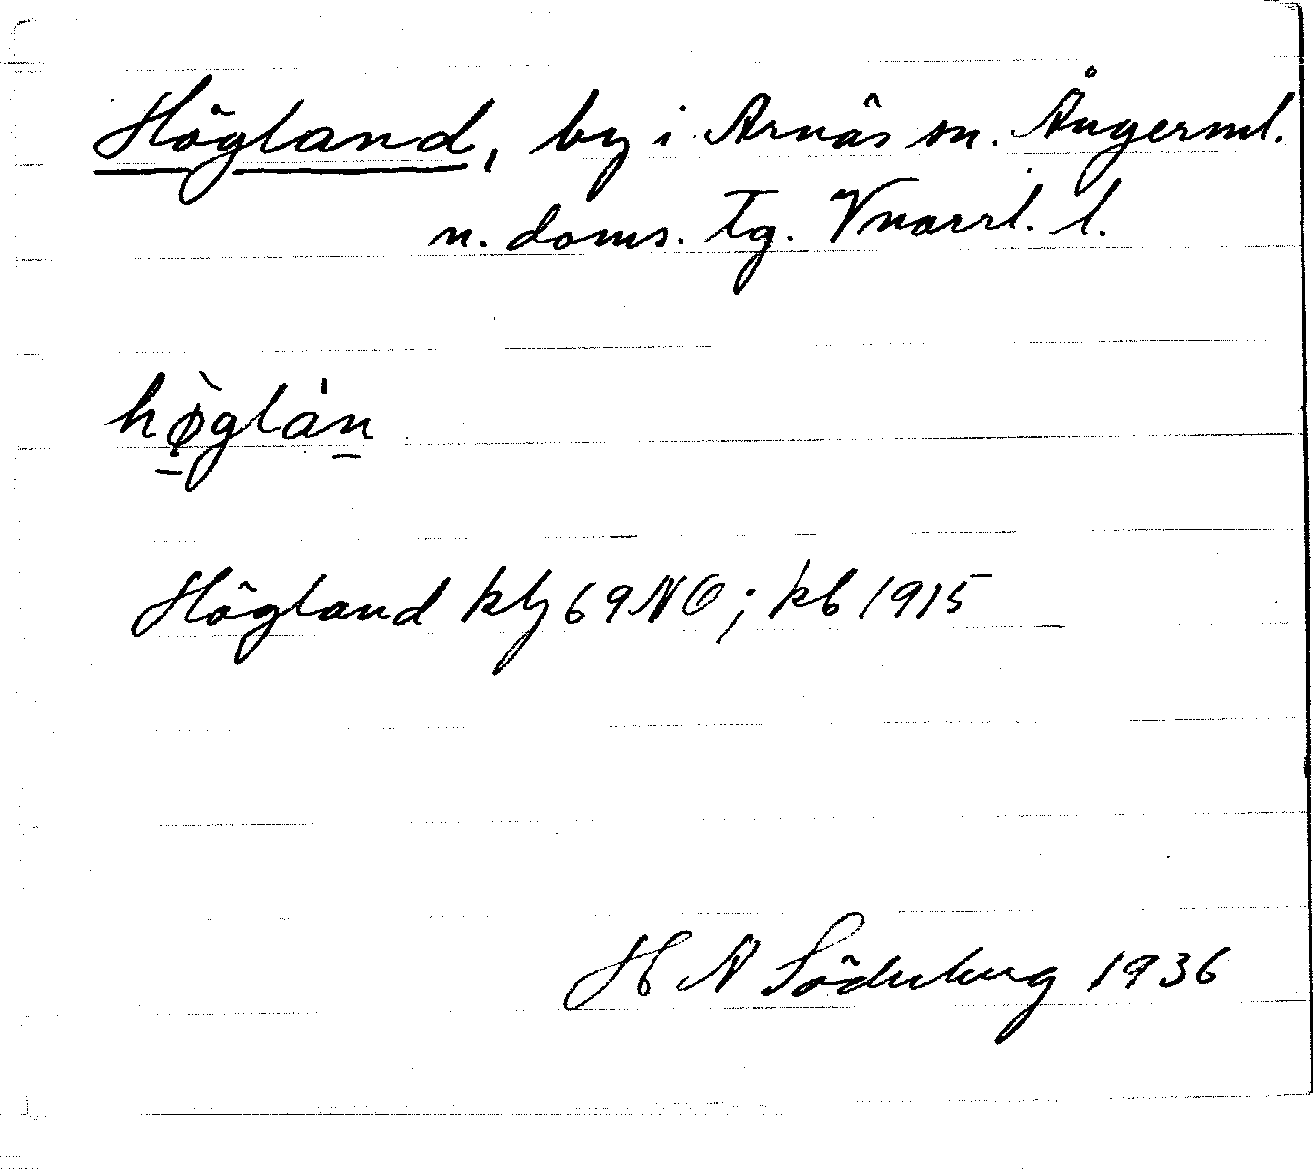 Högland, by i Arnäs sn. Ångerml.
n. doms. tg. Vnorrl. l.
hø̀glán
Högland kbl 69 NO; kb 1915
H A Söderberg 1936